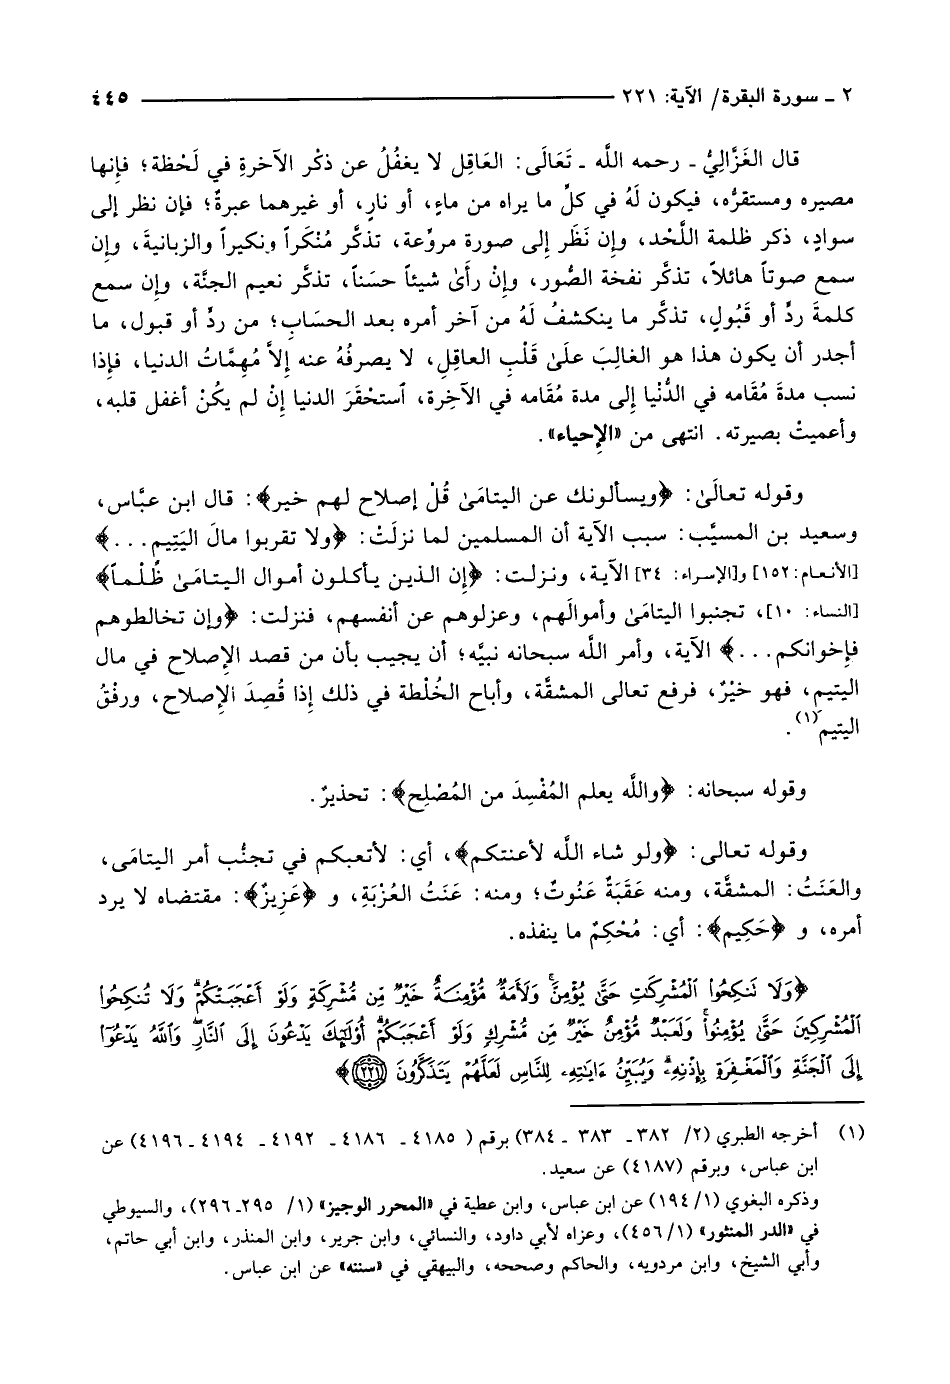 ٢ ـ سورة البقرة/ الآية: ٢٢١ ــــــ ٤٤٥
قال الغَزَّالِيُّ ـ رحمه اللَّه ـ تَعَالَى: العَاقِل لا يغفُلُ عن ذكْر الآخرةِ في لَحْظة؛ فإِنها
مصيره ومستقرُّه، فيكون لَهُ في كلِّ ما يراه من ماءٍ، أو نارٍ، أو غيرهما عبرةٌ؛ فإن نظر إلى
سوادٍ، ذكر ظلمة اللَّحْد، وإِن نَظَر إِلى صورة مروِّعة، تذكَّر مُنْكَراً ونكيراً والزبانيةَ، وإِن
سمع صوتاً هائلاً، تذكَّر نفخة الصُّور، وإِنْ رأَىٰ شيئاً حسَناً، تذكَّر نعيم الجنَّة، وإِن سمع
كلمةَ ردٍّ أو قَبُولٍ، تذكَّر ما ينكشفُ لَهُ من آخر أمره بعد الحسَابِ؛ من ردٍّ أو قبول، ما
أجدر أن يكون هذا هو الغالِبَ علَىٰ قَلْبِ العاقِلِ، لا يصرفُهُ عنه إِلاَّ مُهِمَّاتُ الدنيا، فإِذا
نسب مدةَ مُقَامه في الدُّنْيا إِلى مدة مُقَامه في الآخِرة، ٱستحْقَرَ الدنيا إِنْ لم يكُنْ أغفل قلبه،
وأعميتْ بصيرته. انتهى من «الإِحياء».
وقوله تعالَىٰ: ﴿ويسألونك عن اليتامَىٰ قُلْ إصلاح لهم خير﴾: قال ابن عبَّاس،
وسعيد بن المسيَّب: سبب الآية أن المسلمين لما نزلَتْ: ﴿ولا تقربوا مالَ اليَتِيم...﴾
[الأنعام: ١٥٢] و[الإسراء: ٣٤] الآية، ونزلت: ﴿إن الذين يأكلون أموال اليتامَىٰ ظُلْماً﴾
[النساء: ١٠]، تجنبوا اليتامَىٰ وأموالَهم، وعزلوهم عن أنفسهم، فنزلت: ﴿وإن تخالطوهم
فإِخوانكم...﴾ الآية، وأمر اللَّه سبحانه نبيَّه؛ أن يجيب بأن من قصد الإِصلاح في مال
اليتيمِ، فهو خيْرٌ، فرفع تعالى المشقَّة، وأباح الخُلْطة في ذلك إِذا قُصِدَ الإِصلاح، ورفْقُ
اليتيم(١).
وقوله سبحانه: ﴿واللَّه يعلم المُفْسِدَ من المُصْلِح﴾: تحذيرٌ.
وقوله تعالى: ﴿ولو شاء اللَّه لأعنتكم﴾، أي: لأتعبكم في تجنُّب أمر اليتامَى،
والعَنَتُ: المشقَّة، ومنه عَقَبَةٌ عَنُوتٌ؛ ومنه: عَنَتُ العُزْبَةِ، و ﴿عَزِيزٌ﴾: مقتضاه لا يرد
أمره، و ﴿حَكِيم﴾: أي: مُحْكِمٌ ما ينفذه.
﴿وَلَا تَنكِحُوا۟ ٱلْمُشْرِكَٰتِ حَتَّىٰ يُؤْمِنَّ وَلَأَمَةٌ مُّؤْمِنَةٌ خَيْرٌ مِّن مُّشْرِكَةٍ وَلَوْ أَعْجَبَتْكُمْ وَلَا تُنكِحُوا۟
ٱلْمُشْرِكِينَ حَتَّىٰ يُؤْمِنُوا۟ وَلَعَبْدٌ مُّؤْمِنٌ خَيْرٌ مِّن مُّشْرِكٍ وَلَوْ أَعْجَبَكُمْ أُو۟لَٰٓئِكَ يَدْعُونَ إِلَى ٱلنَّارِ وَٱللَّهُ يَدْعُوٓا۟
إِلَى ٱلْجَنَّةِ وَٱلْمَغْفِرَةِ بِإِذْنِهِۦ وَيُبَيِّنُ ءَايَٰتِهِۦ لِلنَّاسِ لَعَلَّهُمْ يَتَذَكَّرُونَ ﴿٢٢١﴾﴾
(١) أخرجه الطبري (٢/ ٣٨٢ ـ ٣٨٣ ـ ٣٨٤) برقم (٤١٨٥ ـ ٤١٨٦ ـ ٤١٩٢ ـ ٤١٩٤ ـ ٤١٩٦) عن
ابن عباس، وبرقم (٤١٨٧) عن سعيد.
وذكره البغوي (١/ ١٩٤) عن ابن عباس، وابن عطية في «المحرر الوجيز» (١/ ٢٩٥ـ ٢٩٦)، والسيوطي
في «الدر المنثور» (١/ ٤٥٦)، وعزاه لأبي داود، والنسائي، وابن جرير، وابن المنذر، وابن أبي حاتم،
وأبي الشيخ، وابن مردويه، والحاكم وصححه، والبيهقي في «سننه» عن ابن عباس.